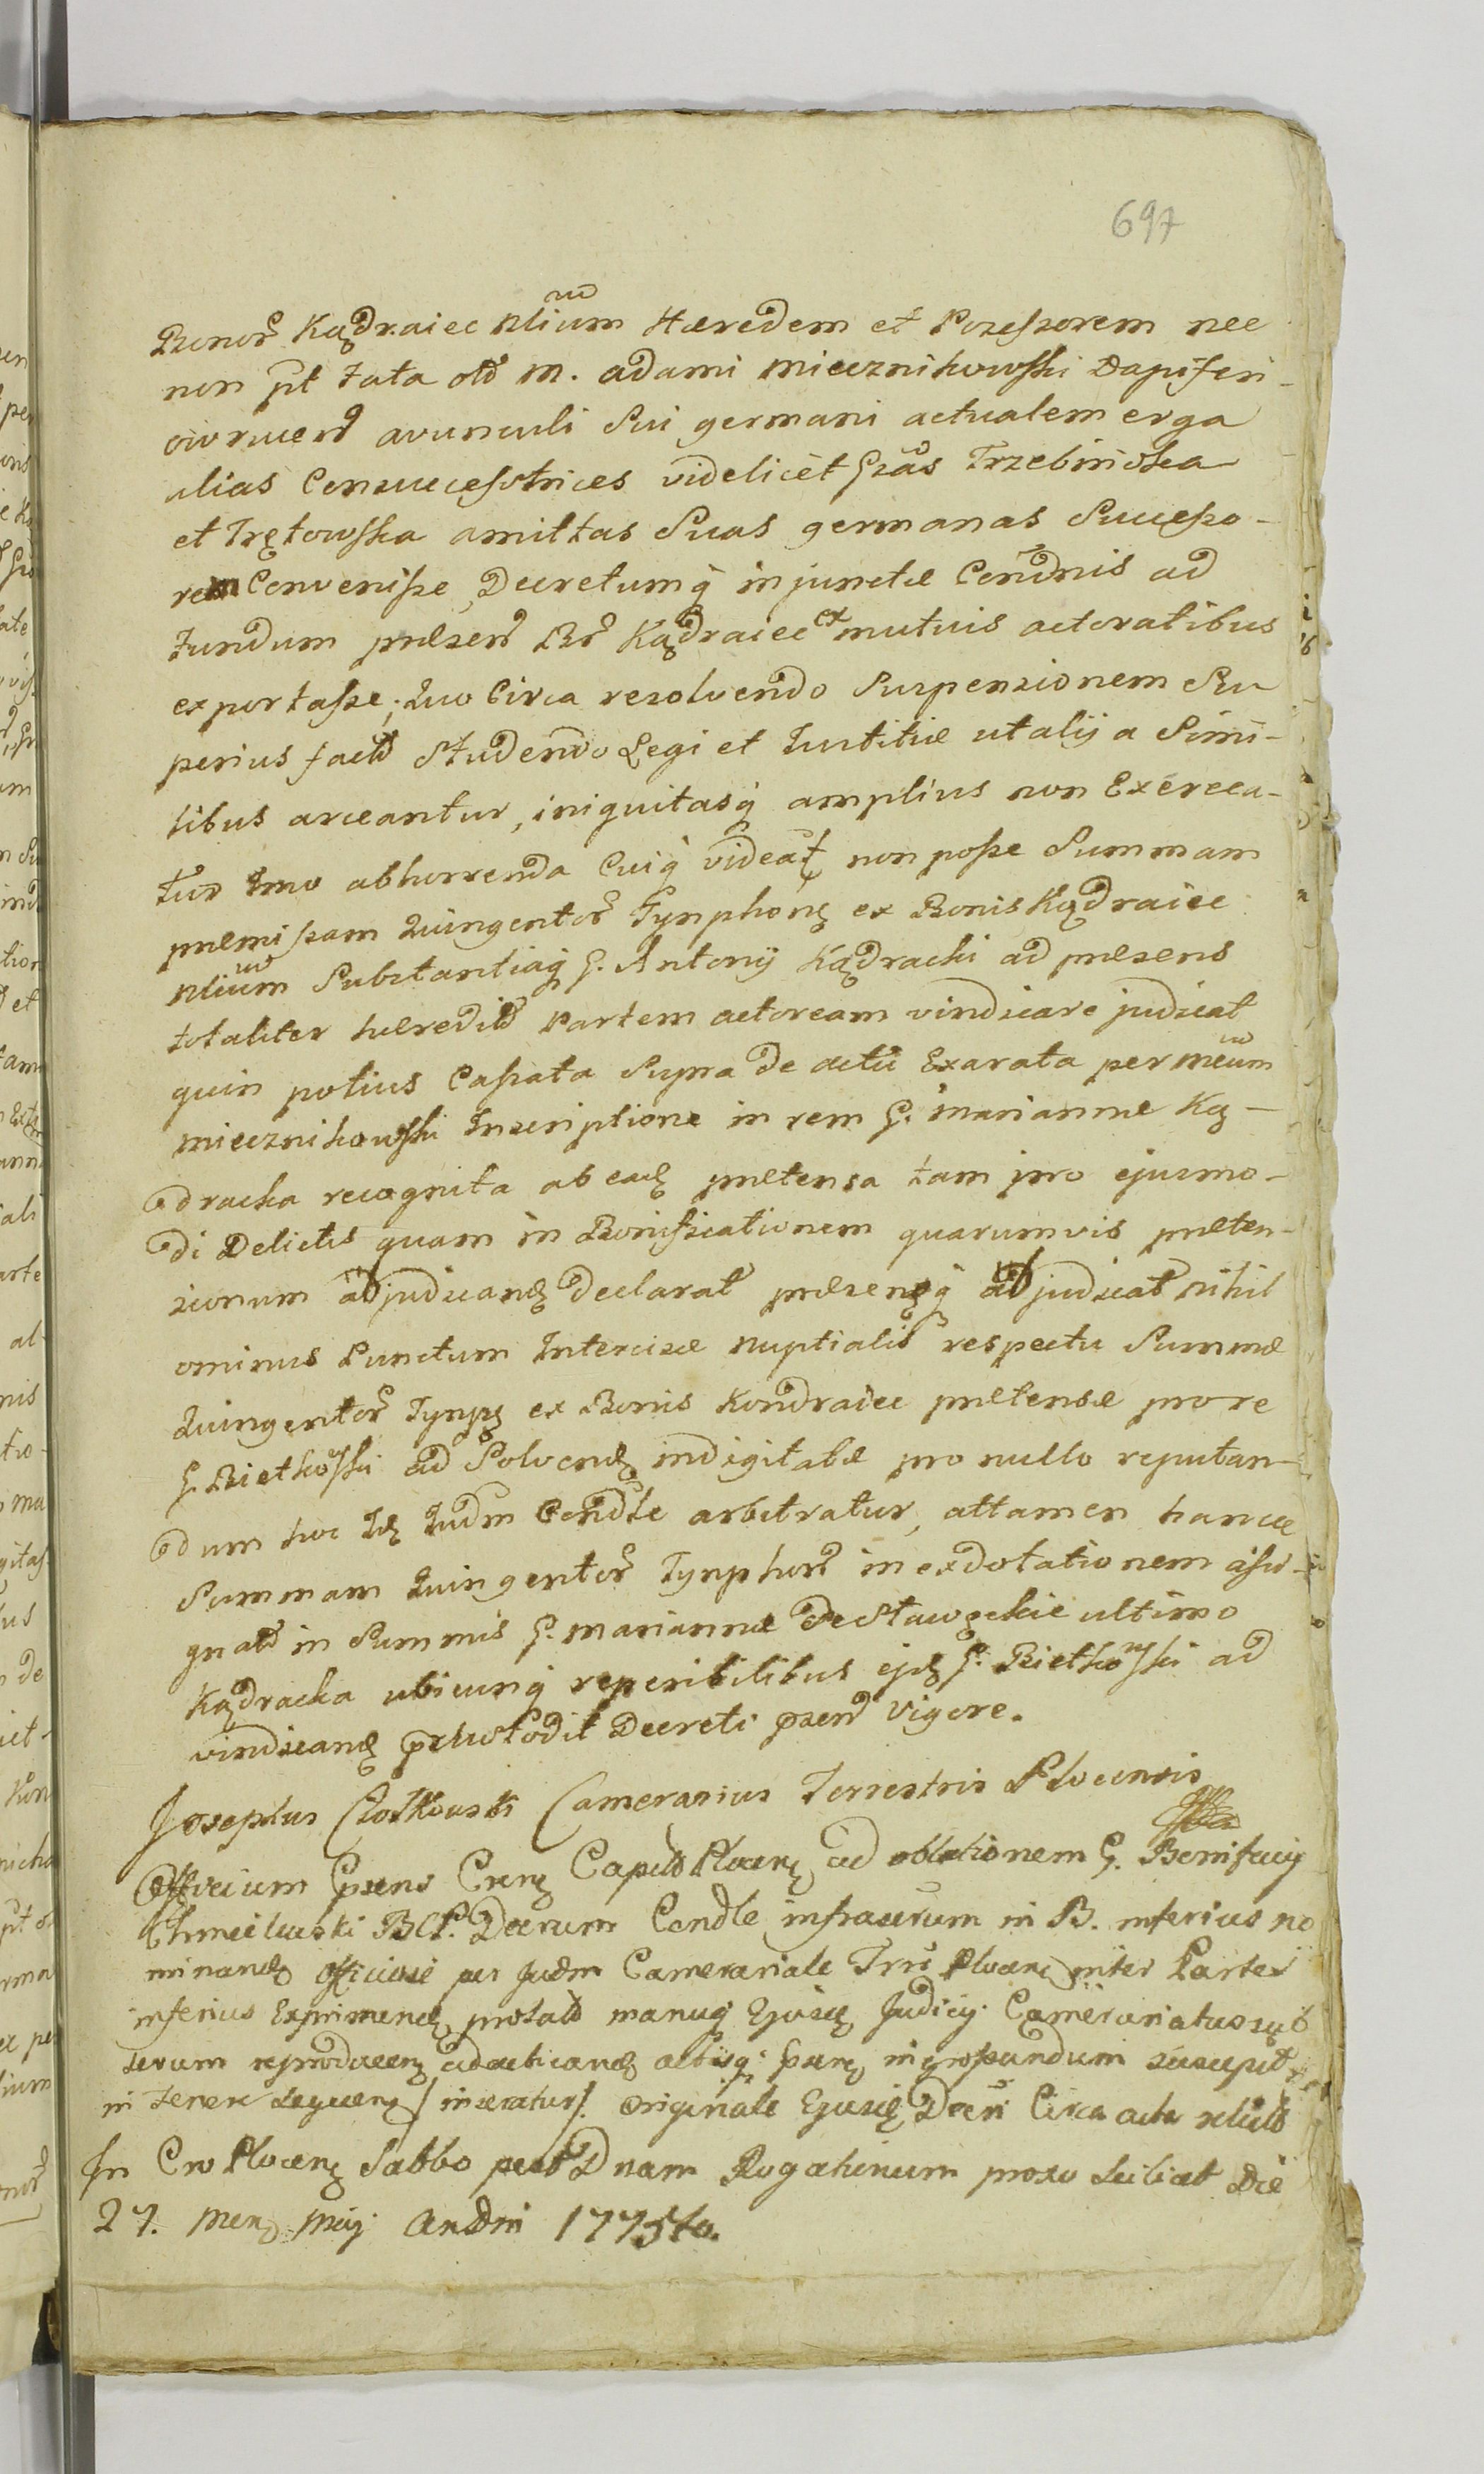 697
Bonor Kądraiec Nliūm Hæredem et Possessorem nec
non pt Fata olb M. Adami Miecznikowski Dapiferi
avunculi Sui germani actualem erga
alias Consuccessotrices videlicet Gsas Trzebinska
et Trętowska amittas Suas germanas Successo-
rem Convenisse, Decretumq injunctæ Condnis ad
Fundum præsen Br Kądraiec ex mutuis actoratibus
exportasse; Quo Circa resolvendo Suspensionem Su
perius factā Studendo Legi et Justitiæ ut alij a Simi-
libus arceantur, iniquitasq amplius non Exercea-
tur Imo abhorrenda Cuiq videat non posse Summam
præmissam Quingentor Tynphonę ex Bonis Kądraiec
Nliūm Substantiaq G. Antonij Kądracki ad præsens
totaliter hæredit Partem actoream vindicare judicat
quin potius Cassata Supra de actu Exarata per Mēūm
Miecznikowski Inscriptione in rem G. Mariannæ Ką-
dracka recognita ab eadę prætensa tam pro ejusmo-
di Delictis quam in Bonificationem quarumvis præten-
sionum adjudicandę declarat præsensq adjudicat Nihil
ominus Punctum Intercisæ Nuptialis respectu Summæ
Quingentor Tynpę ex Bonis Kondraiec prætensæ pro re
G. Bietkowski ad Solvendę indigitatæ pro nullo reputan-
dum hoc Idę Judm Condle arbitratur, attamen hancce
Summam Quingentor Tynphor in exdotationem assi-
gnat in Summis G. Mariannæ de ultimo
Kądracka ubicunq reperibilibus ejdę G. Bietkowski ad
vindicandę Decreti psen Vigore.
Josephus Camerarius Terrestris Plocensis
Officium psens Crenę Capeto Plocenę ad oblationem G. Bonifacij
Chmielewski BCP. Decrum Condle infrascrum in B. inferius no
minandę officiose per Judm Camerariale Trrs Plocenę inter Partes
inferius Exprimendę prolat manuq Ejusdę Judicij Camerariatus sub
scrum reproducenę ad acticandę actisq psenę ingrossandum suscepit
in Tenore Sequenę / inseratur /. Originale Ejusdę Decri Circa acta relict
In Cro Plocenę Sabbo post Dnam Rogationum proxo scilicet Die
27. Menę Maij Andni 1775to.